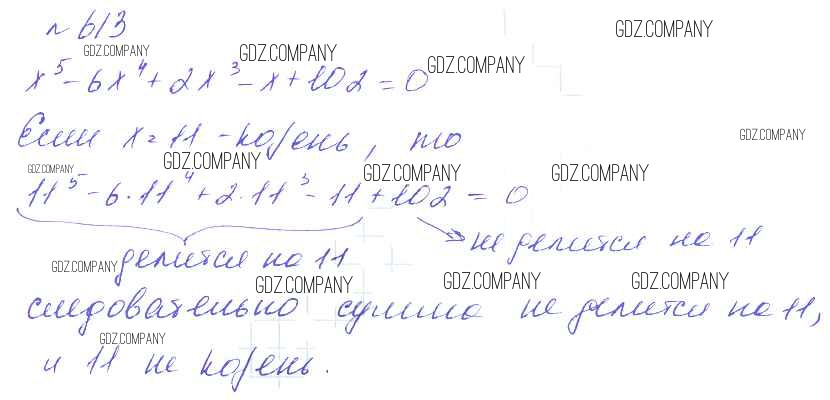 № 613
x⁵ - 6x⁴ + 2x³ - x + 102 = 0
Если x = 11 - корень, то
11⁵ - 6·11⁴ + 2·11³ - 11 + 102 = 0
делится на 11 не делится на 11
следовательно сумма не делится на 11,
и 11 не корень.
GDZ.COMPANY
GDZ.COMPANY
GDZ.COMPANY
GDZ.COMPANY
GDZ.COMPANY
GDZ.COMPANY
GDZ.COMPANY
GDZ.COMPANY
GDZ.COMPANY
GDZ.COMPANY
GDZ.COMPANY
GDZ.COMPANY
GDZ.COMPANY
GDZ.COMPANY